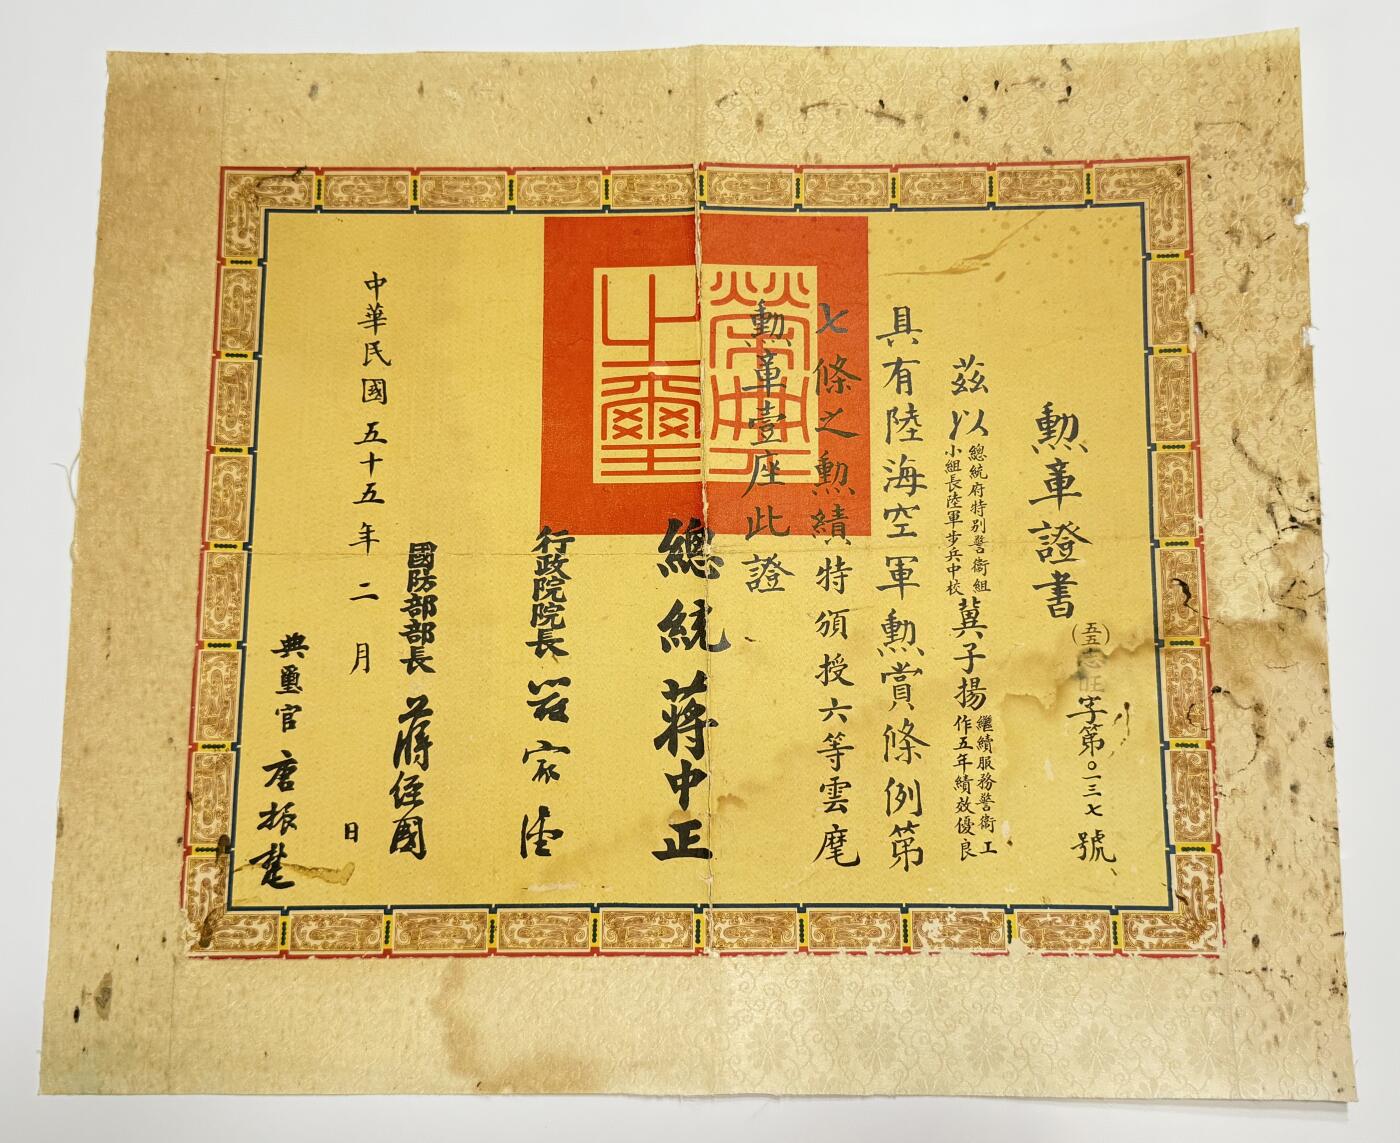 勲章證書
(五五)志旺字第〇一三七號
茲以總統府特別警衛組小組長陸軍步兵中校冀子揚繼續服務警衛工作五年績效優良
具有陸海空軍勲賞條例第
七條之勲績特頒授六等雲麾
勲章壹座此證
榮典之璽
總統 蔣中正
行政院院長 嚴家淦
國防部部長 蔣經國
中華民國五十五年二月 日
典璽官 唐振楚